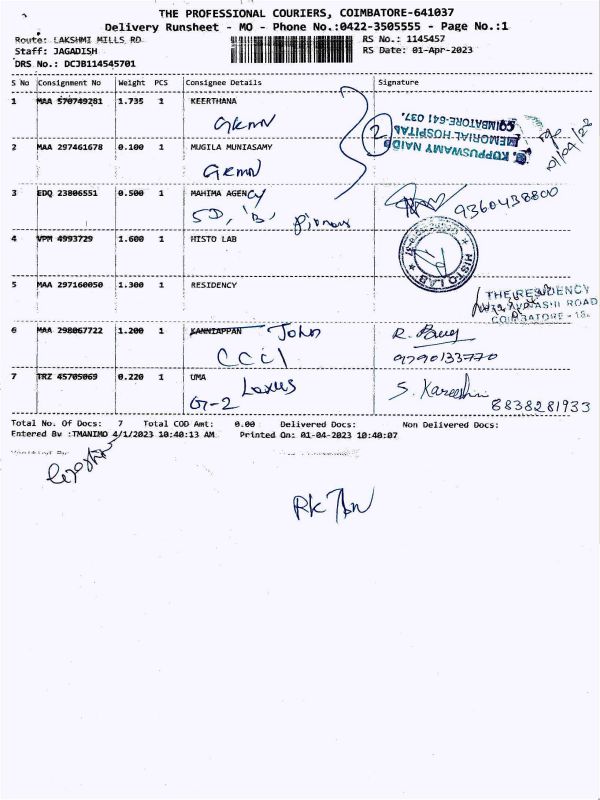 THE PROFESSIONAL COURIERS, COIMBATORE-641037
Delivery Runsheet - MO - Phone No.:0422-3505555 - Page No.:1
Route: LAKSHMI MILLS RD
RS No.: 1145457
Staff: JAGADISH
RS Date: 01-Apr-2023
DRS No.: DCJB114545701
S No Consignment No Weight PCS Consignee Details Signature
1 MAA 570749281 1.735 1 KEERTHANA
GKMN
2 MAA 297461678 0.100 1 MUGILA MUNIASAMY
GKMN
2
G. KUPPUSWAMY NAIDU
MEMORIAL HOSPITAL
COIMBATORE-641 037.
01/04/23
3 EDQ 23806551 0.500 1 MAHIMA AGENCY
9360438800
4 VPM 4993729 1.600 1 HISTO LAB
HISTO LAB
5 MAA 297160050 1.300 1 RESIDENCY
THE RESIDENCY
AVINASHI ROAD
COIMBATORE - 18.
6 MAA 298067722 1.200 1 KANNIAPPAN John
CCCI
9790133770
7 TRZ 45705069 0.220 1 UMA
Lexus
G-2
S. Kareethi
8838281933
Total No. Of Docs: 7 Total COD Amt: 0.00 Delivered Docs: Non Delivered Docs:
Entered By :TMANIMO 4/1/2023 10:40:13 AM Printed On: 01-04-2023 10:40:07